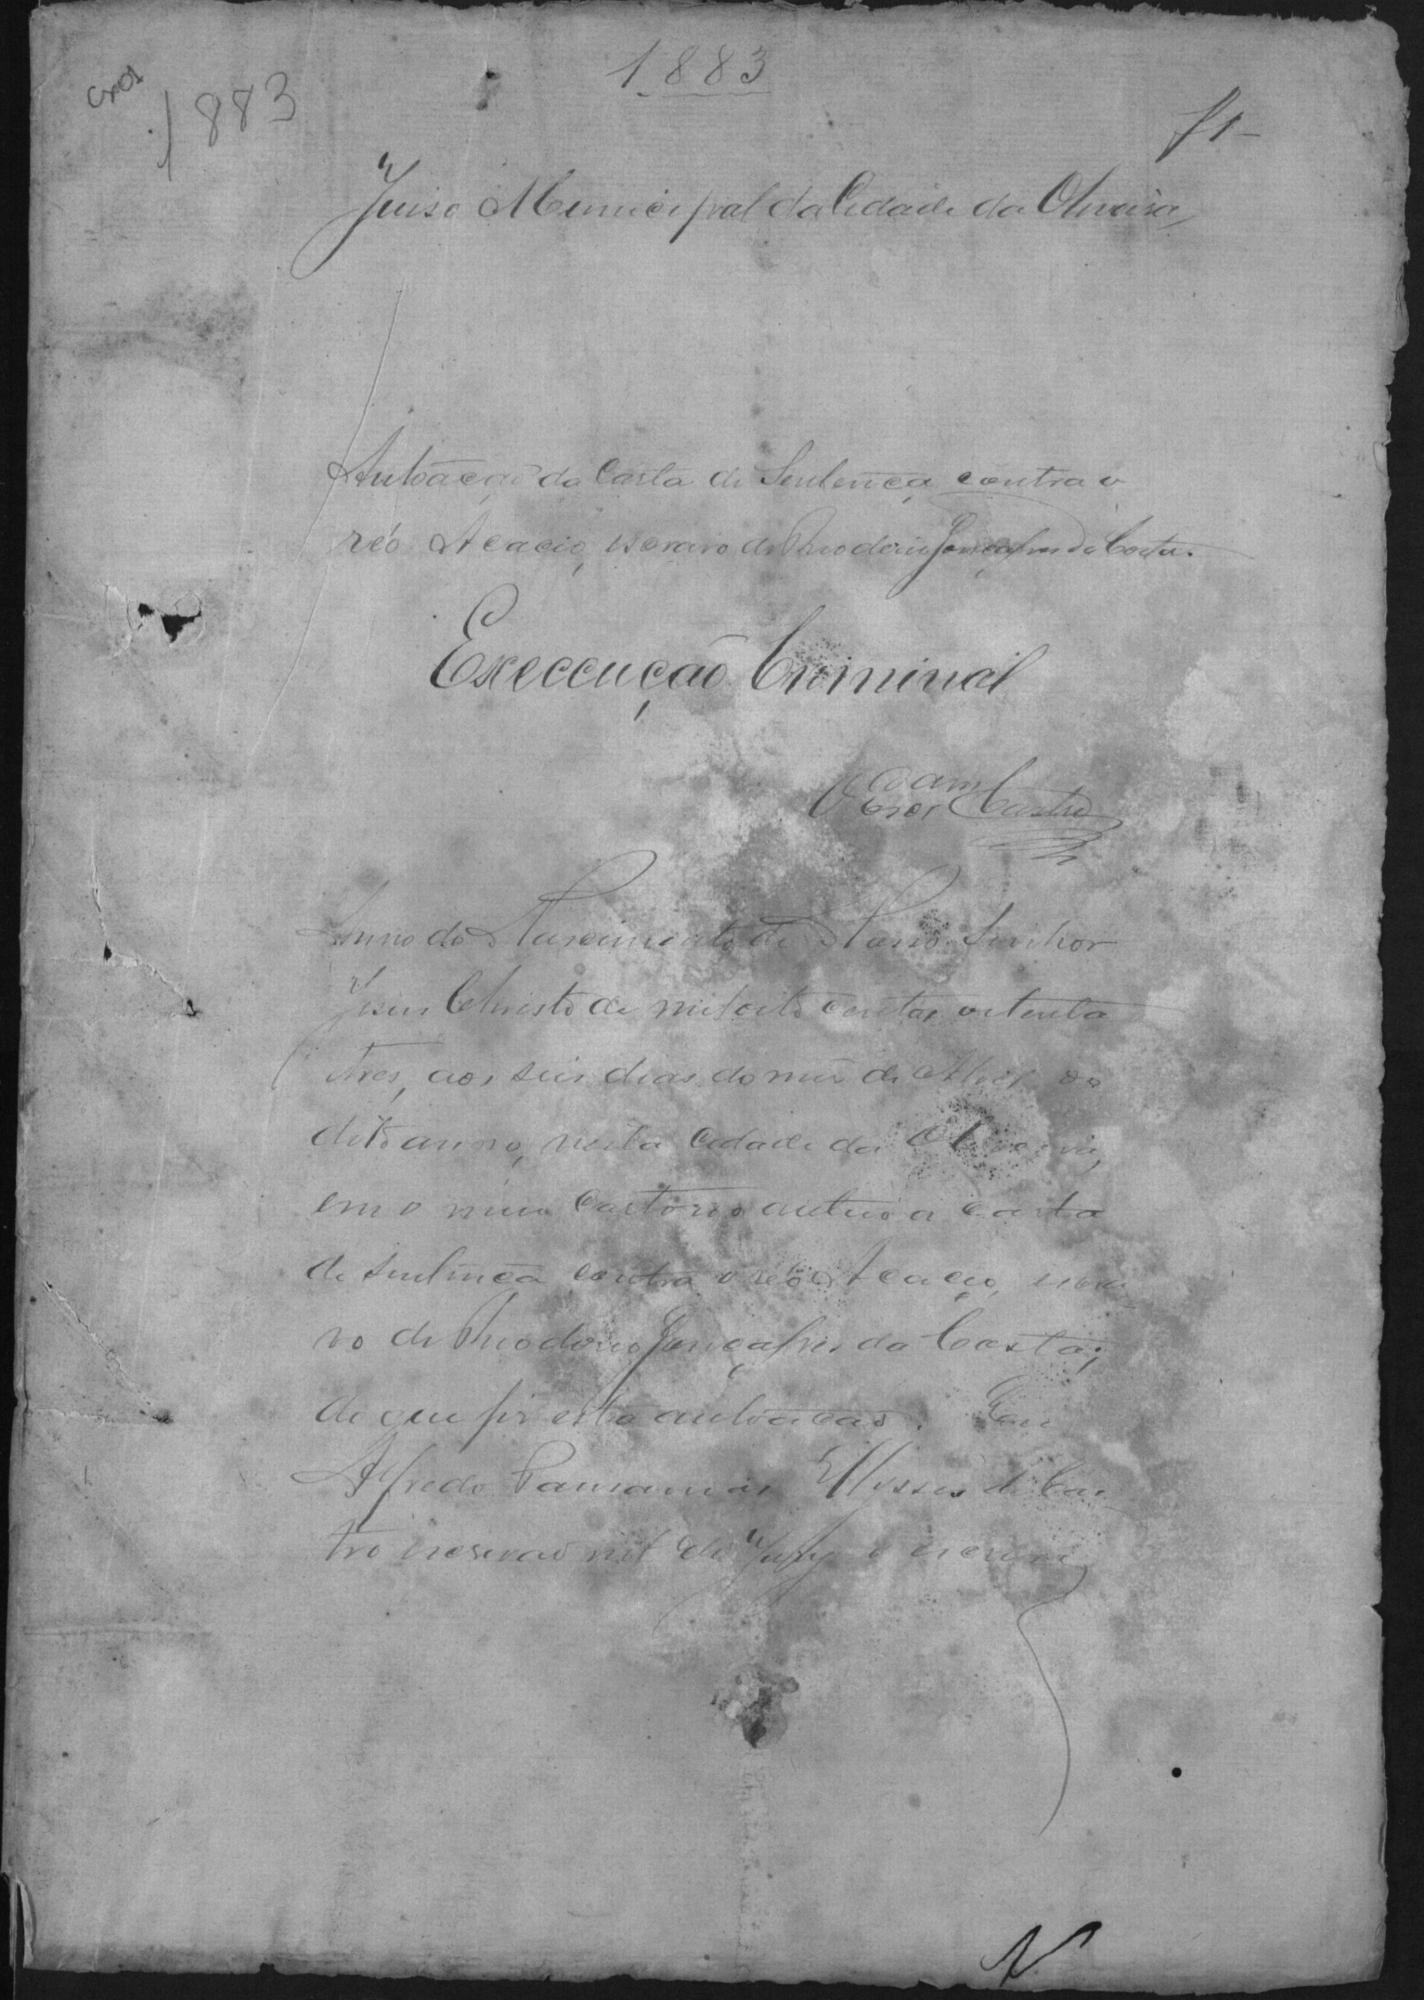 1883
1883
f1
Juiso Municipal da Cidade da Oliveira
Autoação da Carta de Sentença contra o
réo Acacio, escravo de Theodosio Gonçalves da Costa.
Execcução Criminal
Castro
Anno do Nascimento de Nosso Senhor
Jesus Christo de mil oito centos oitenta
tres, aos seis dias do mes de do
dito anno, nesta Cidade da Oliveira,
em o meu Cartorio autuo a carta
de sentença contra o réo Acacio, escra
vo de Theodosio Gonçalves da Costa;
de que fiz esta autoação. Eu
Alfredo Ulysses de Cas
tro escrivão do Jury o escrevi